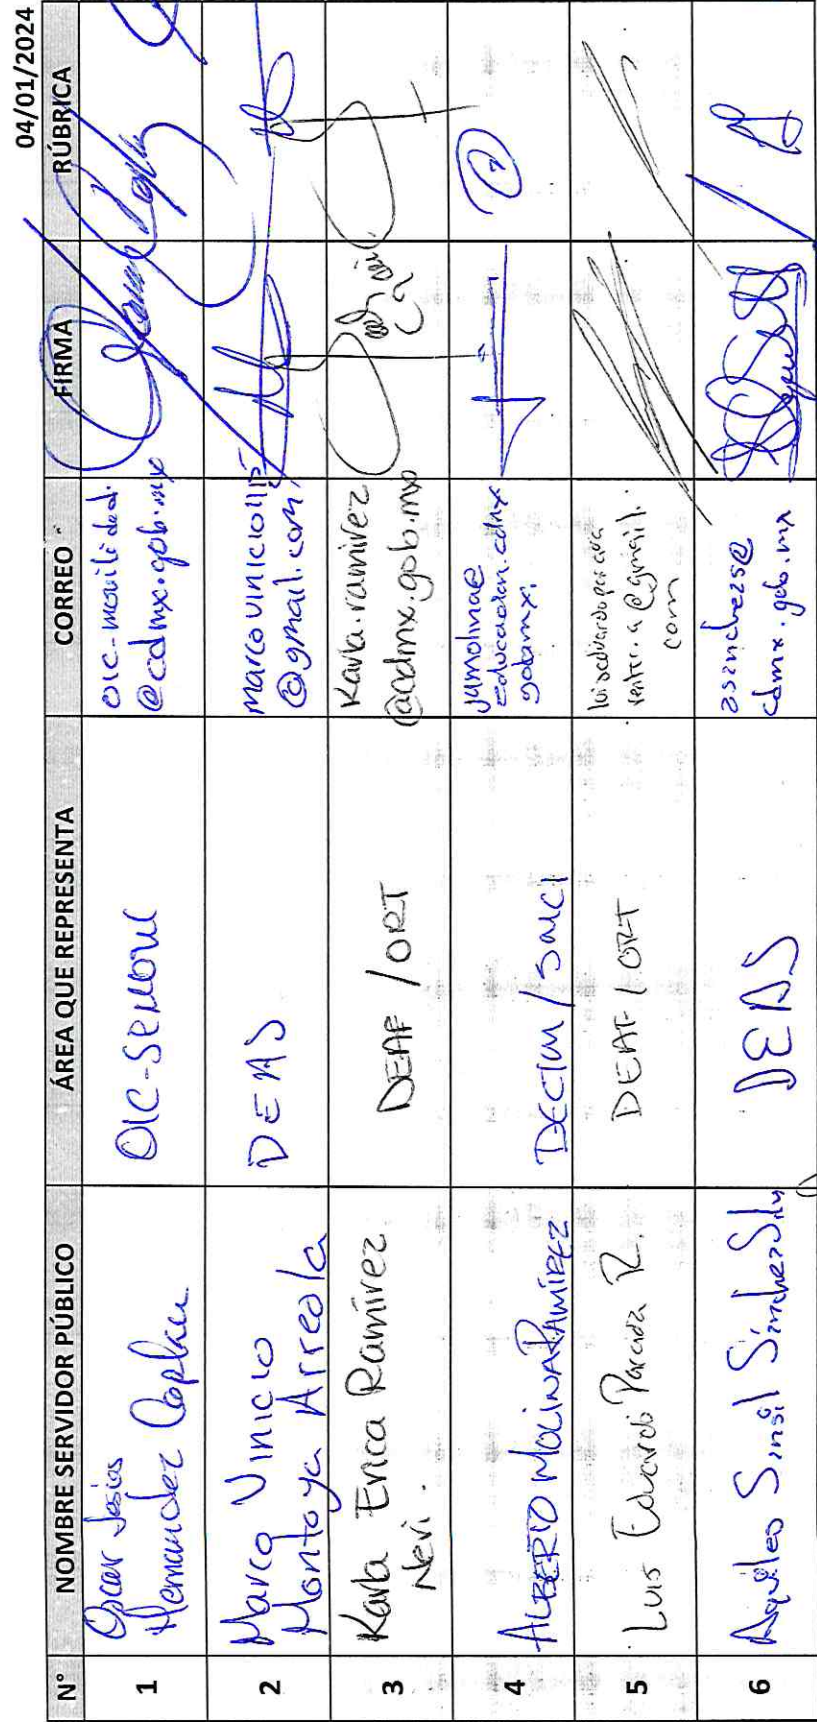 04/01/2024
N° NOMBRE SERVIDOR PÚBLICO ÁREA QUE REPRESENTA CORREO FIRMA RÚBRICA
1
Oscar Josias
Hernandez
OIC-SEMOVI
oic-movilidad.
@cdmx.gob.mx
2
Marco Vinicio
Montoya Arreola
DEAS
marcovinicio115
@gmail.com
3
Karla Erica Ramírez
Neri.
DEAF/ORT
Karla.ramirez
@cdmx.gob.mx
4
ALBERTO MOLINA RAMÍREZ
DECTM/SMCI
jamolina@
educacion.cdmx
gob.mx.
5
Luis Eduardo Parada R.
DEAF/ORT
@gmail.
com
6
Aquileo Sinsil
DEAS
asanchezs@
cdmx.gob.mx